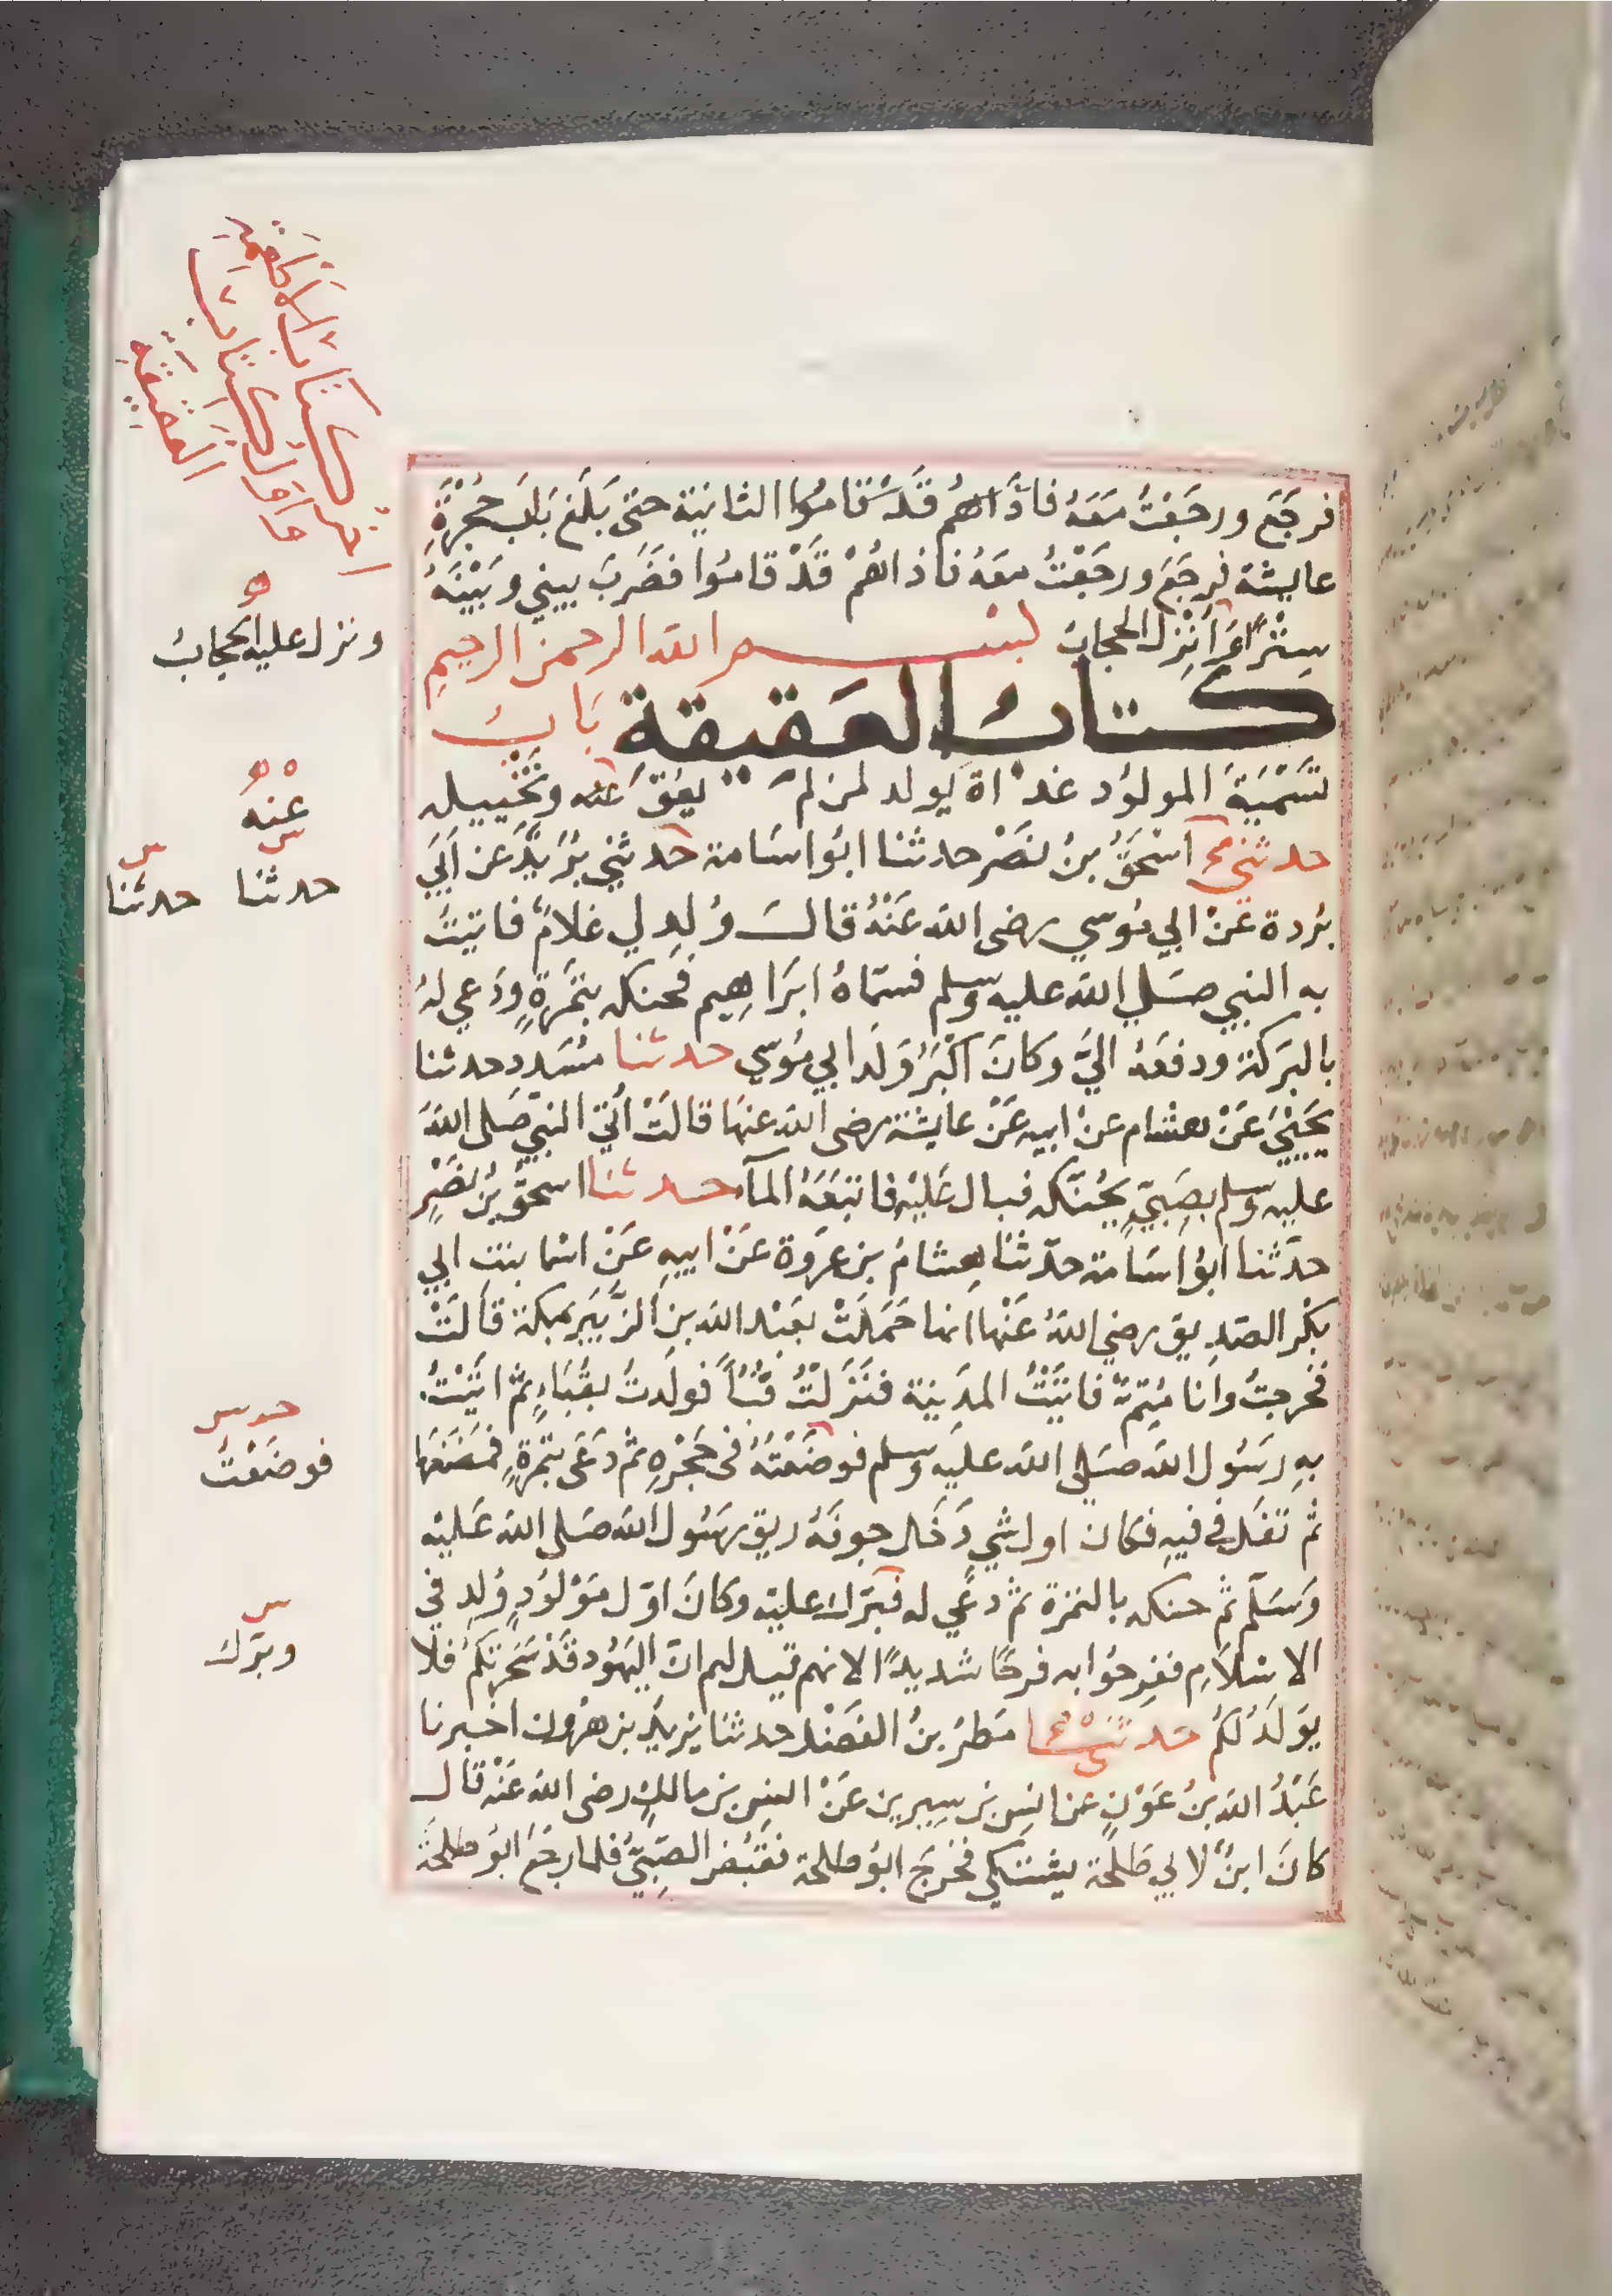 اخر كتاب الاطعمة
واول كتاب
العقيقة
فرجَعَ ورجَعْتُ مَعَهُ فاذَا هُم قَدْ قامُوا الثانية حتى بَلَغ بَابَ حُجْرَةِ
عايشة فرجَعَ ورجَعْتُ معَهُ فاذا هُمْ قَدْ قامُوا فضَرَبَ بيني وبَيْنَهُ
سِتْرًا وَأُنْزِل الحجابُ بسم الله الرحمن الرحيم
ونزل عليه الحجابُ
كتاب العَقيقة بَابُ
تَسْمِيَةِ المولوُد غداة يُولد لمن لم يعُقّ عنه وتَحْنِيكه
عَنْهُ
حدثني اسْحَقُ بنُ نصْر حدثنا ابُوا اسَامة حدثني بُرَيْدٌ عن أَبِي
حدثنا حدثنا
بُردة عَنْ ابي مُوسي رضى الله عَنْهُ قالَ وُلِد لي غلامٌ فاتيتُ
به النبي صَلي الله عليه وسلم فسَمّاهُ ابَراهِيم فحنكه بتمَرةٍ ودَعي لهُ
بالبَركة ودفعَهُ اليَّ وكانَ اكْبَرُ وَلَدِ ابي مُوسي حدثنا مُسَدد حدثنا
يَحْيَي عَنْ هشام عنْ ابيه عَنْ عايشة رضى الله عنهَا قالَتْ أُتِيَ النبيّ صَلى اللهَ
عليه وسلم بصَبيّ يُحنّكه فبال عَليْه فاتبَعَهُ المآء حدثنا اسحقُ بنُ نَصْرٍ
حدّثنا ابوُا اسَامة حدّثنا هِشامُ بن عرْوَة عَنْ ابيهِ عَنْ اسْما بنت ابي
بكْر الصّديق رضي اللهُ عَنْها انها حَمَلَتْ بعَبْد الله بنِ الزّبَيَر بمكة قالَتْ
فخرجتُ وانا مُتِمّ فاتيَتُ المدِينة فنَزَلتُ قُبآ فولَدتُ بقُبَاءٍ ثمّ اتَيْتُ
بهِ رَسُول الله صَلى الله عليه وسلم فوضَعْتُهُ فى حَجْرِهِ ثم دَعَى بتمْرةٍ فمضَغَها
فوضَعْتُ
ثم تَفَلَ في فيهِ فكان اول شي دَخَل جوفَهُ ريق رسُول الله صَلى الله عَليْه
وَسَلّم ثم حنكه بالتمرة ثم دعي له فبَرّك عليْه وكانَ اوّل مَوْلوُدٍ وُلِد في
وبَرّك
الاسْلامِ ففرِحُوا به فرحًا شديدًا لانهم قيل لهم انّ اليَهُود قَدْ سَحَرتكُم فلا
يوَلَدُ لَكُم حدثنا مَطرُ بنُ الفَضْل حدثنا يزيدُ بن هٰرون اخبرنا
عَبْدُ الله بنُ عَوْنٍ عن انسِ بن سِيرين عَنْ انس بن مالكٍ رضى الله عَنْه قال
كانَ ابنٌ لابي طلحَة يشتكي فخرَجَ ابوُ طلحة فقبُض الصّبِيّ فلما رجَعَ ابوُ طلحَة